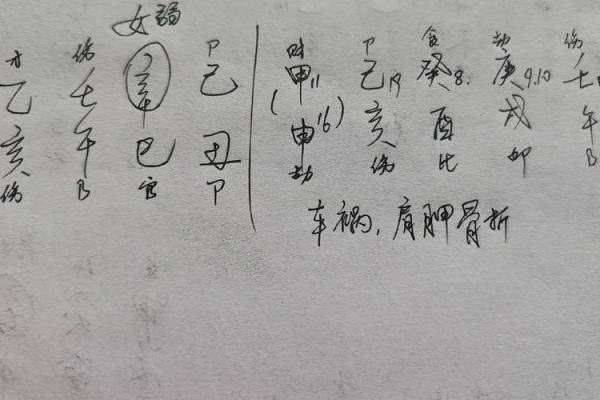 女弱
才 伤 P 财 P 食 劫 伤
乙 壬 辛 己 甲11 己19 癸8. 庚9.10 壬
亥 午 巳 丑 (申16) 亥 酉 戌 午
伤 B 官 P 劫 伤 比 卯 B
车祸，肩胛骨折